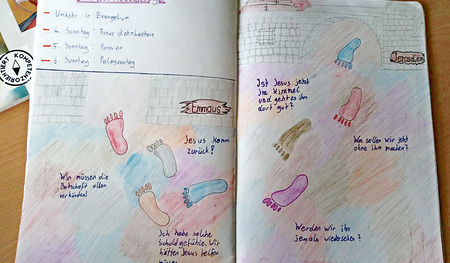 - Umkehr in Evangelium
- 4. Sonntag: Freue d'ch
- 5. Sonntag:
- 6. Sonntag: Palmsonntag
KOMPETENZORIENTIERT
Emmaus
Jesus komm
zurück!
Wir müssen die
Botschaft allen
verkünden!
Ich habe solche
Schuldgefühle. Wir
hätten Jesus helfen
müssen
Jerusalem
Ist Jesus jetzt
im Himmel
und geht es ihm
dort gut?
Was sollen wir jetzt
ohne ihn machen?
Werden wir ihn
jemals wiedersehen?